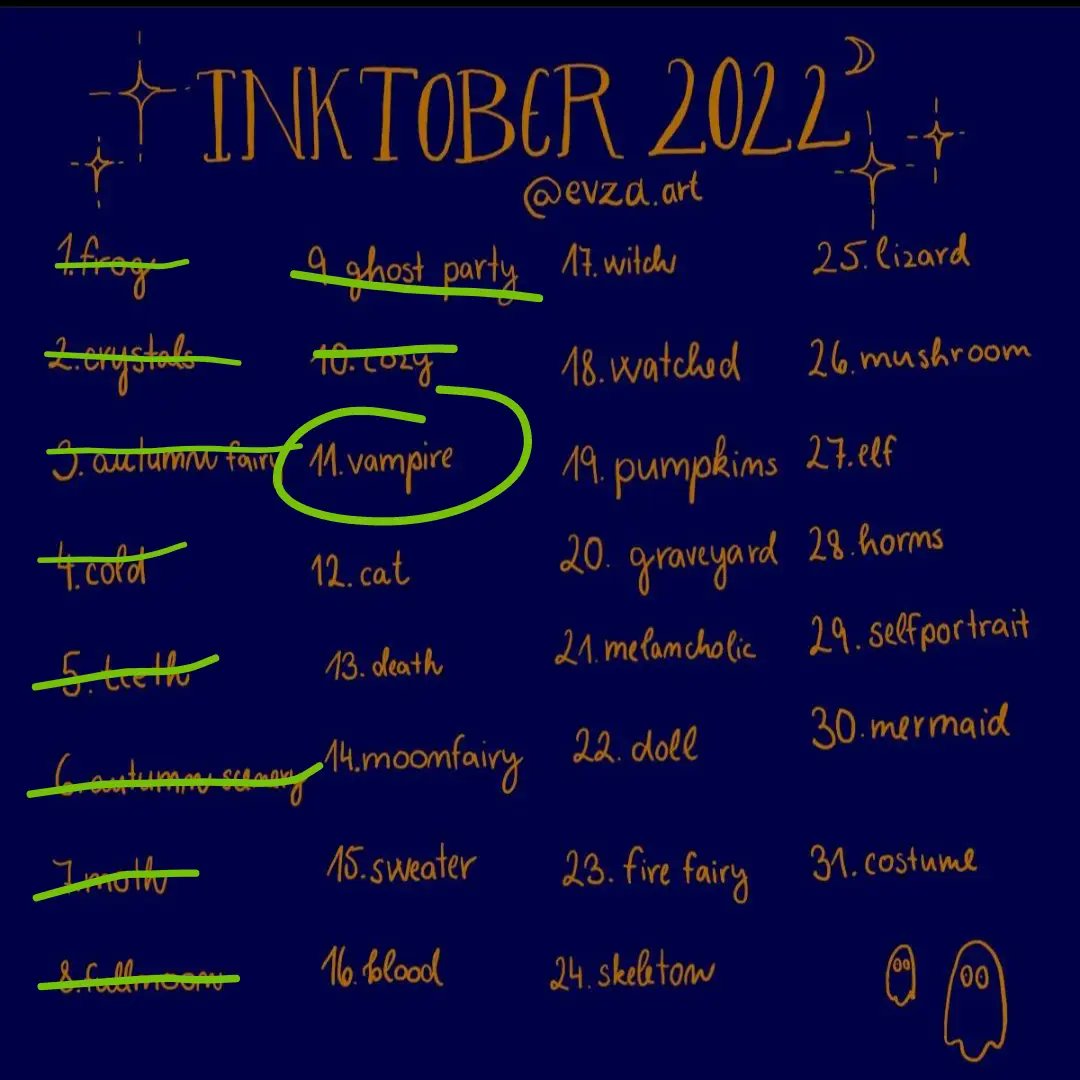 INKTOBER 2022
@evza.art
1. frog
2. crystals
3. autumn fairy
4. cold
5. teeth
6. autumn scenery
7. moth
8. fullmoon
9. ghost party
10. cozy
11. vampire
12. cat
13. death
14. moonfairy
15. sweater
16. blood
17. witch
18. watched
19. pumpkins
20. graveyard
21. melancholic
22. doll
23. fire fairy
24. skeleton
25. lizard
26. mushroom
27. elf
28. horns
29. selfportrait
30. mermaid
31. costume